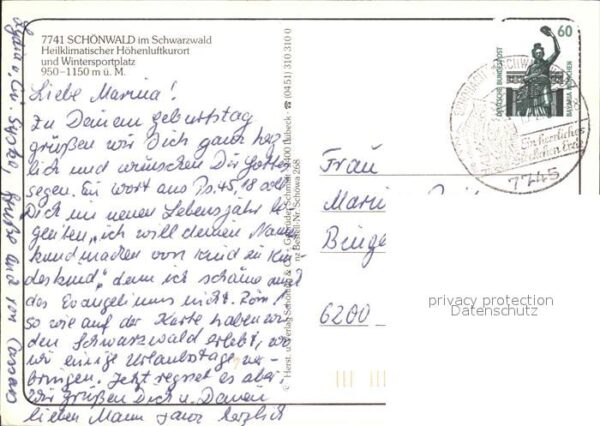 7741 SCHÖNWALD im Schwarzwald
Heilklimatischer Höhenluftkurort
und Wintersportplatz
950–1150 m ü. M.
Liebe Marina!
Zu Deinem Geburtstag
grüßen wir Dich ganz herz
lich und wünschen Dir Gottes
Segen. Ein Wort aus Ps. 45,18 soll
Dich im neuen Lebensjahr be
gleiten „ich will deinen Namen
kund machen von Kind zu Kin
deskind", denn ich schäme mich
des Evangeliums nicht. Röm 1
so wie auf der Karte haben wir
den Schwarzwald erlebt, wo
wir einige Urlaubstage ver-
bringen. Jetzt regnet es aber.
Wir grüßen Dich u. Deinen
lieben Mann ganz herzlich
Lydia u.
Grüße auch von
Schöning & Co + Gebrüder Schmidt
Lübeck · ☎ (0451) 310310
Bestell-Nr. Schöwa 268
60
DEUTSCHE BUNDESPOST
BAVARIA MÜNCHEN
Ein herrliches
7745
Frau
6200
privacy protection
Datenschutz